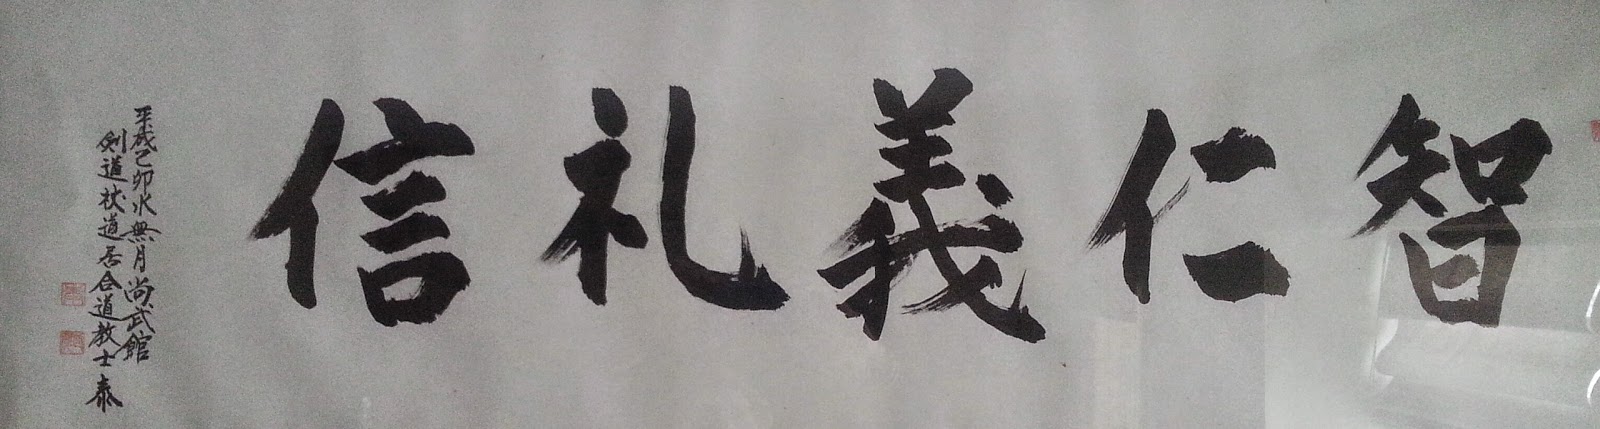 智仁義礼信
平成己卯水無月尚武館
剣道杖道居合道教士泰